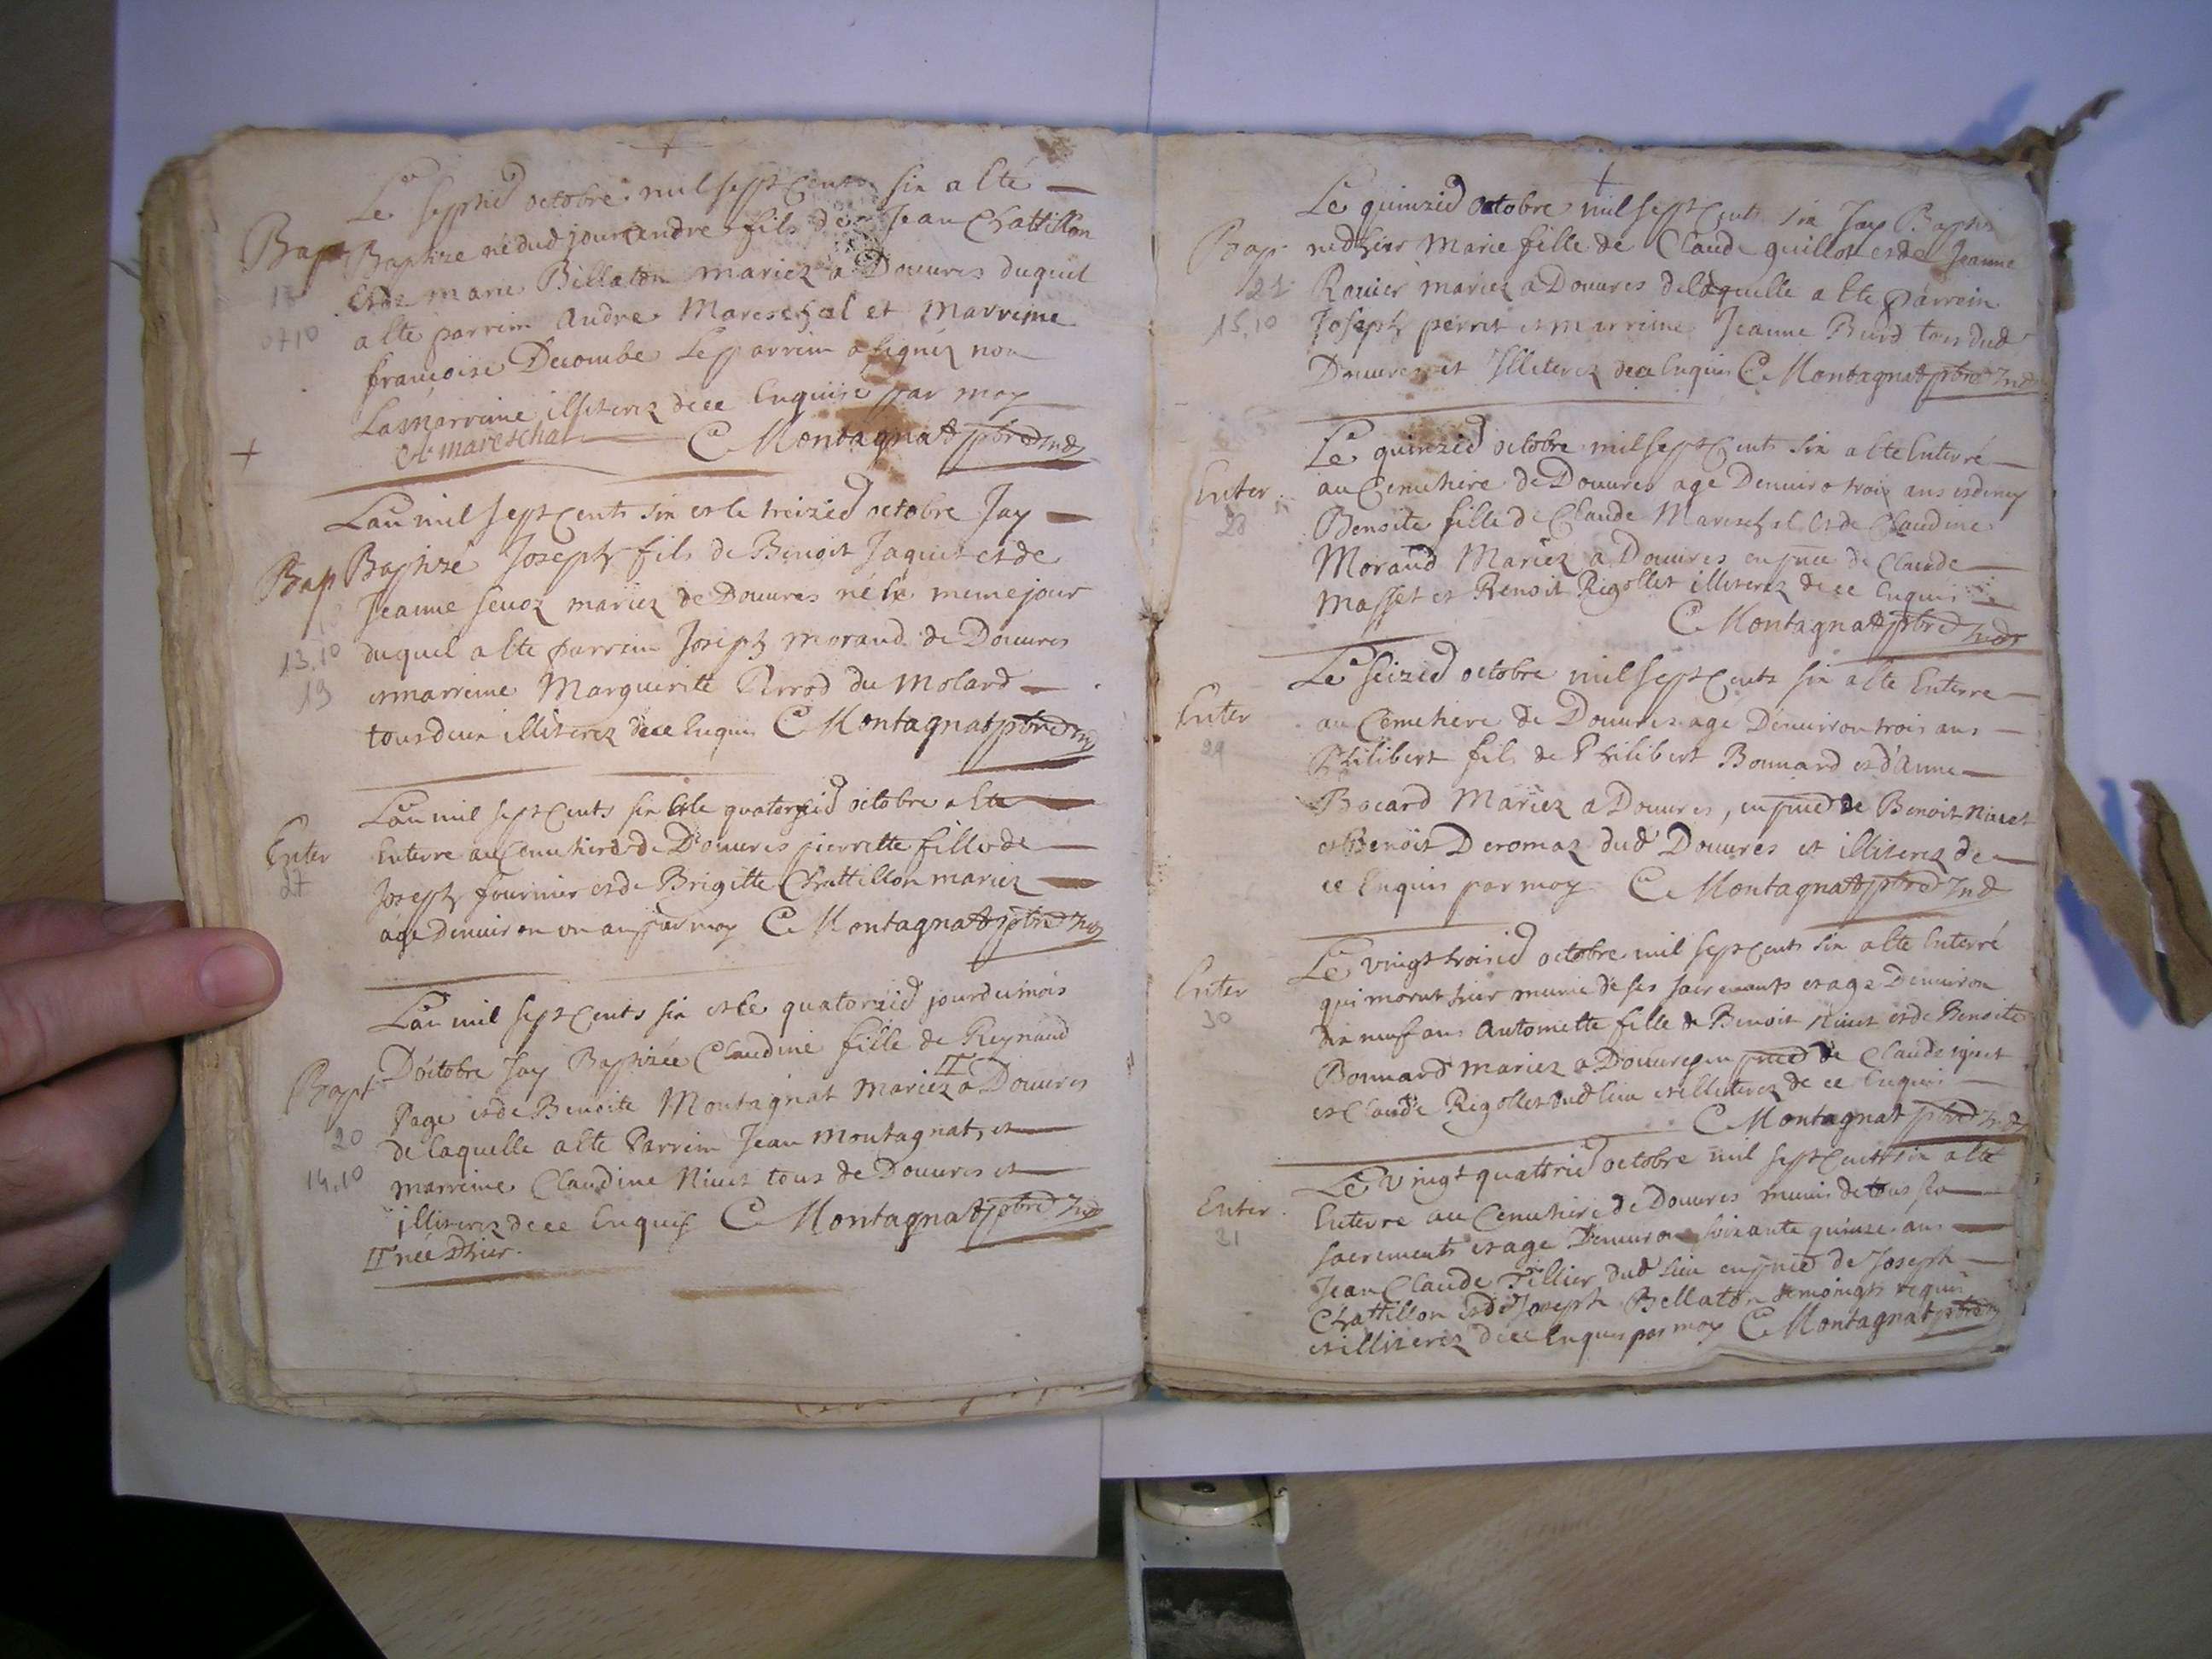 Le septied octobre mil sept Cents six a lté
Bap Baptize né dud jour endre fils de Jean Chattillon
et de marie Billaton mariez a Douures duquel
07 10
a lté parrein Andre Mareschal et Marreine
francoise Decombe Le parrein a signéz non
La Marreine illiterez de ce Enquise par moy
A mareschal C Montagnat ptre Ind
L'an mil sept Cents six et le treizied octobre Jay
Bap Baptizé Joseph fils de Benoit Jaquet et de
Jeanne seuoz mariez de Douures né le meme jour
13.10
19
duquel a lté parrein Joseph morand de Douures
et marreine Marguerite Perrod du Molard
tous deux illiterez de ce Enquis C Montagnat ptre Ind
L'an mil sept Cents six et le quatorzied octobre a lte
Enter
27
Enterre au Cemetiere de Douures pierrette fille de
Joseph fournier et de Brigitte Chattillon mariez
age Denuiron un an par moy C Montagnat ptre Ind
L'an mil sept Cents six et le quatorzied jour du mois
Bapt
D'octobre Jay Baptizée Claudine fille de Reynaud
Page et de Benoite Montagnat mariez a Douures
20
14.10
de laquelle a lté Parrein Jean Montagnat, et
marreine Claudine Niuet tous de Douures et
illiterez de ce Enquis C Montagnat ptre Ind
née d'hier.
Le quinzied octobre mil sept Cents six Jay Baptiz
Bap
ned'hier Marie fille de Claude quillot et de Jeanne
21
15.10
Rouier mariez a Douures de laquelle a lte parrein
Joseph perret et marreine Jeanne Burd tous dud
Douures et Illiterez de ce Enquis C Montagnat ptre Ind
Le quinzied octobre mil sept Cents six a lte Enterré
Enter
28
au Cemetiere de Douures age Denuiro trois ans et demy
Benoite fille de Claude Mareschal et de Claudine
Morand Mariez a Douures en pnce de Claude
Masset et Benoit Rigollet illiterez de ce Enquis
C Montagnat ptre Ind
Le seizied octobre mil sept Cents six a lte Enterre
Enter
29
au Cemetiere de Douures age Denuiron trois ans
Philibert fils de Philibert Bonnard et d'anne
Bocard Mariez a Douures, en pnced de Benoit Niuet
et Benoit Deromaz dud Douures et illiterez de
ce Enquis par moy C Montagnat ptre Ind
Le vingt troisied octobre mil sept Cents six a lte Enterré
Enter
30
qui morut hier munie de ses sacremants et age Denuiron
dix neuf ans Antoinette fille de Benoit Niuet et de Benoite
Bonnard mariez a Douures en pnced de Claude
et Claude Rigollet dud lieu et illiterez de ce Enquis
C Montagnat ptre Ind
Le vingt quattried octobre mil sept Cents six a lte
Enter
31
Enterre au Cemetiere de Douures munis de tous ses
sacrements et age Denuiron soixante quinze ans
Jean Claude Tillier dud lieu en pnced de Joseph
Chattillon et de Joseph Bellaton temoigts requis
et illiterez de ce Enquis par moy C Montagnat ptre Ind